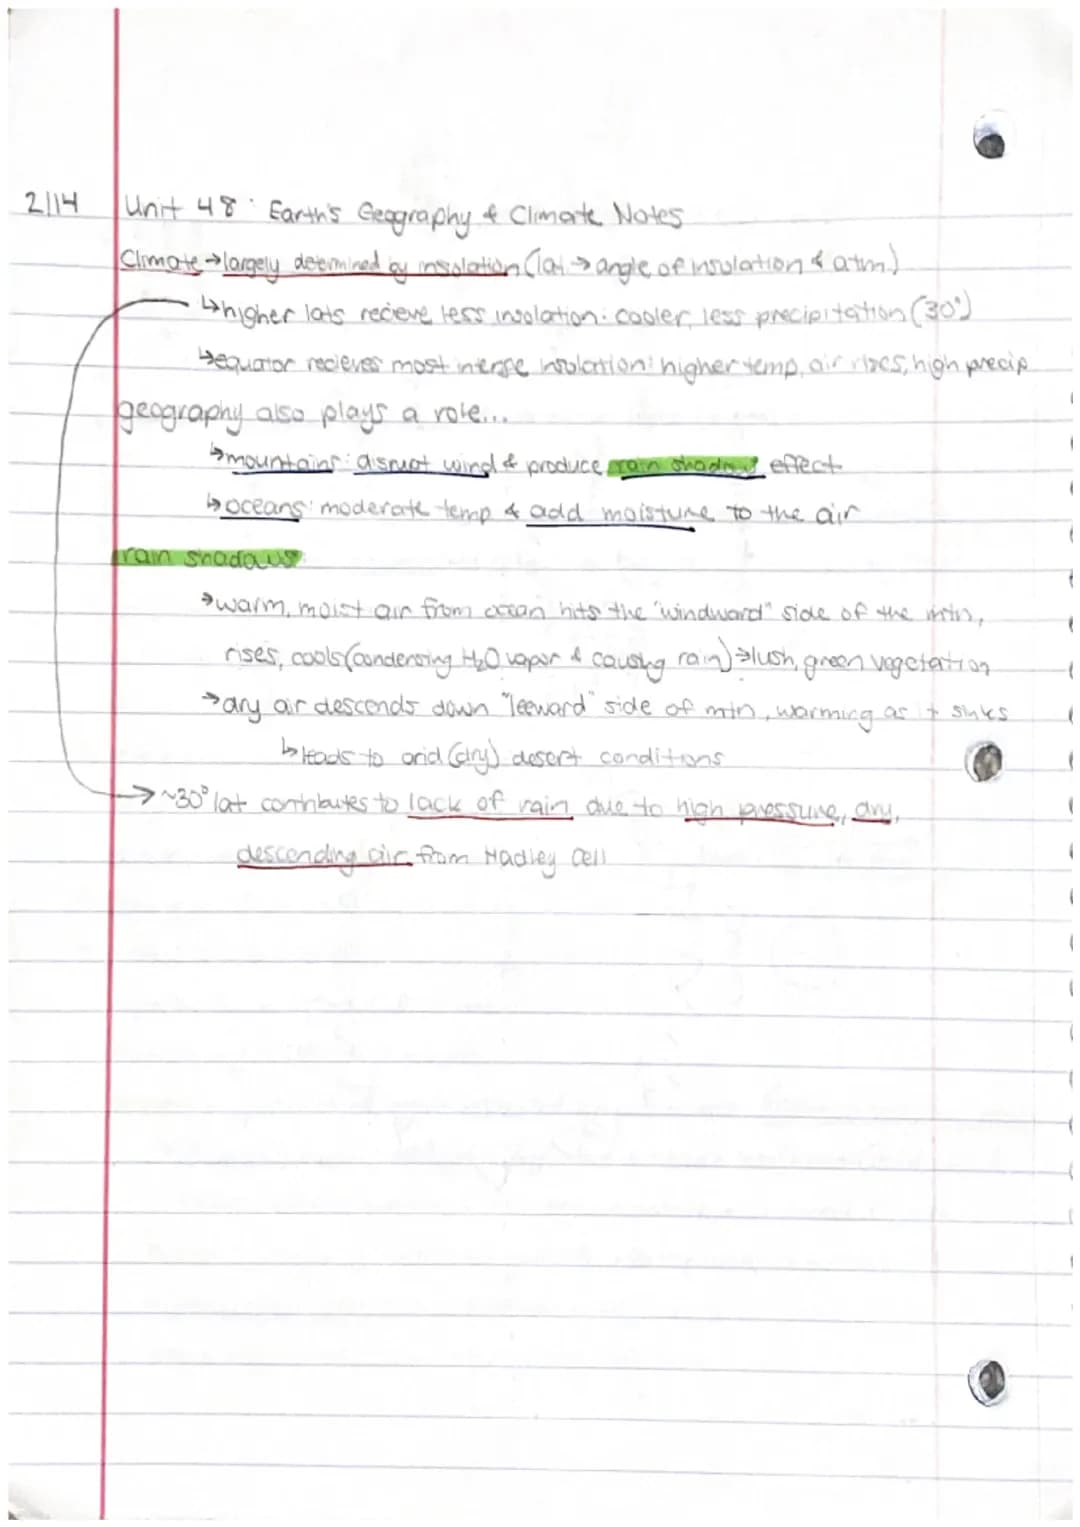 2/14 Unit 48: Earth's Geography & Climate Notes
Climate → largely determined by insolation (lat → angle of insolation & atm.)
↳ higher lats recieve less insolation: cooler, less precipitation (30°)
↳ equator recieves most intense insolation: higher temp, air rises, high precip
geography also plays a role...
↳ mountains: disrupt wind & produce rain shadow effect
↳ oceans: moderate temp & add moisture to the air
rain shadows:
→ warm, moist air from ocean hits the "windward" side of the mtn,
rises, cools (condensing H2O vapor & causing rain) → lush, green vegetation
→ dry air descends down "leeward" side of mtn, warming as it sinks
↳ leads to arid (dry) desert conditions
→ ~30° lat contributes to lack of rain due to high pressure, dry,
descending air from Hadley Cell